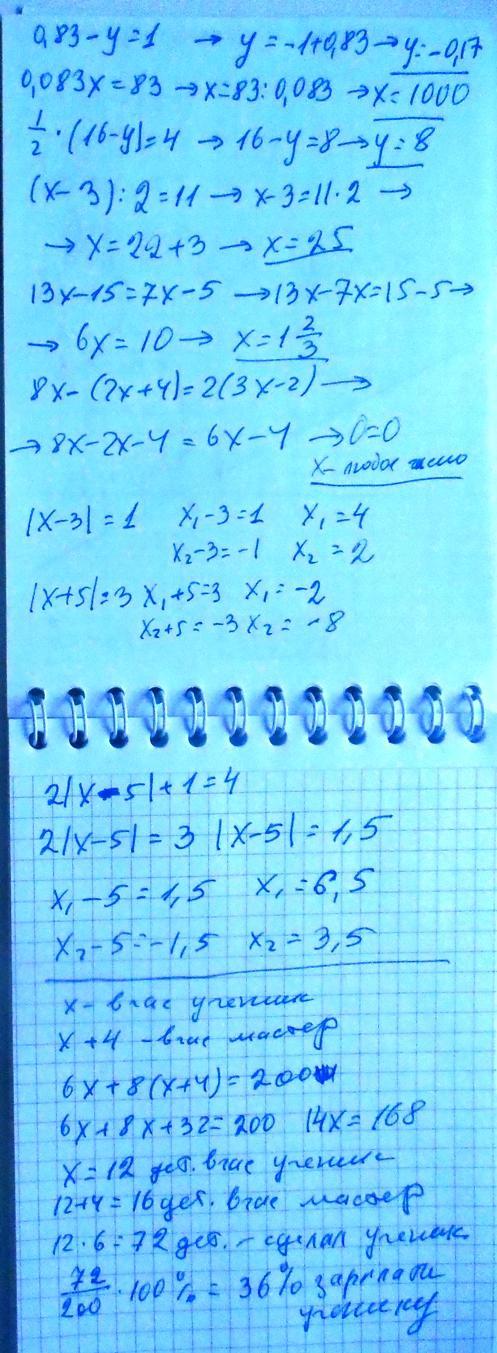 0,83-y=1 → y=-1+0,83→y=-0,17
0,083x=83 →x=83:0,083 →x=1000
1/2·(16-y)=4 → 16-y=8→y=8
(x-3):2=11 → x-3=11·2 →
→ x=22+3 → x=25
13x-15=7x-5 →13x-7x=15-5→
→ 6x=10→ x=1 2/3
8x-(2x+4)=2(3x-2) →
→ 8x-2x-4=6x-4 →0=0
x- любое число
|x-3|=1 x₁-3=1 x₁=4
x₂-3=-1 x₂=2
|x+5|=3 x₁+5=3 x₁=-2
x₂+5=-3 x₂=-8
2|x-5|+1=4
2|x-5|=3 |x-5|=1,5
x₁-5=1,5 x₁=6,5
x₂-5=-1,5 x₂=3,5
x- в час ученик
x+4 -в час мастер
6x+8(x+4)=200
6x+8x+32=200 14x=168
x=12 дет. в час ученик
12+4=16 дет. в час мастер
12·6=72 дет. - сделал ученик
72/200·100%=36% зарплаты
ученику